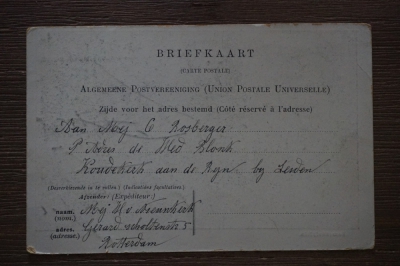 BRIEFKAART
(CARTE POSTALE)
ALGEMEENE POSTVEREENIGING (UNION POSTALE UNIVERSELLE)
Zijde voor het adres bestemd (Côté réservé à l'adresse)
Aan Mej C Rosberger
P/Adres de Wed Blonk
Koudekerk aan de Rijn by Leiden
(Desverkiezende in te vullen) (Indications facultatives)
Afzender (Expéditeur)
naam. (nom.) Mej H v
adres. (adresse.) Gerard Scholtenstr 5
Rotterdam